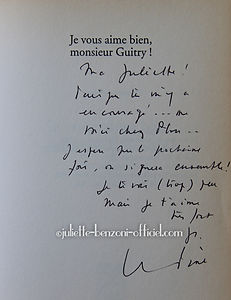 Je vous aime bien,
monsieur Guitry !
Ma Juliette !
Puisque tu m'y a
encouragé... me
voici chez Plon..
J'espère que la prochaine
fois, on signera ensemble !
Je te vois (trop) peu
mais je t'aime
très fort
©juliette-benzoni-officiel.com